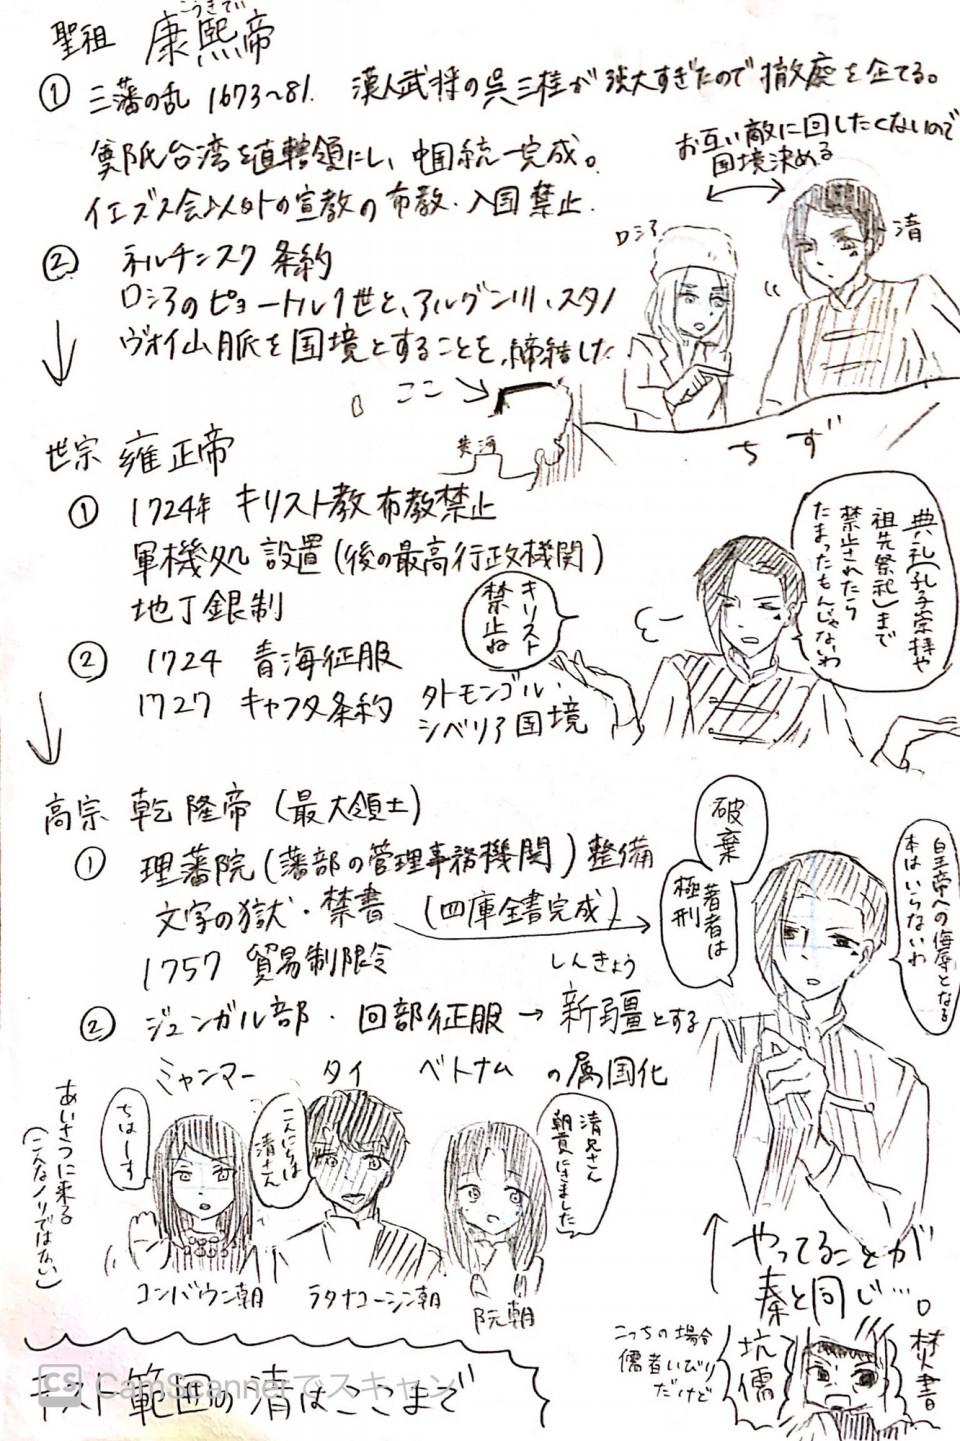 こうきてい
聖祖 康熙帝
① 三藩の乱 1673~81. 漢人武将の呉三桂が強大すぎたので撤廃を企てる。
鄭氏台湾を直轄領にし、中国統一完成。
イエズス会以外の宣教の布教・入国禁止.
お互い敵に回したくないので
国境決める
ロシア
清
② ネルチンスク条約
ロシアのピョートル1世と、アルグン川、スタノ
ヴォイ山脈を国境とすることを、締結した
ここ
黄河
ちず
世宗 雍正帝
① 1724年 キリスト教布教禁止
軍機処 設置(後の最高行政機関)
地丁銀制
② 1724 青海征服
1727 キャフタ条約 外モンゴル、
シベリア国境
キリスト
禁止ね
典礼(孔子崇拝や
祖先祭祀)まで
禁止されたら
たまったもんじゃないわ
高宗 乾隆帝(最大領土)
① 理藩院(藩部の管理事務機関)整備
文字の獄・禁書 (四庫全書完成)
1757 貿易制限令
しんきょう
② ジュンガル部・回部征服→新疆とする
ミャンマー タイ ベトナム の属国化
破棄
著者は
極刑
皇帝への侮辱となる
本はいらないわ
あいさつに来る
(こんなノリではない)
ちはーす
こんにちは
清さん
清兄さん
朝貢にきました
コンバウン朝 ラタナコーシン朝 阮朝
やってることが
秦と同じ…
こっちの場合
儒者いびり
だけど
焚書
坑儒
テスト範囲の清はここまで
CS CamScannerでスキャン